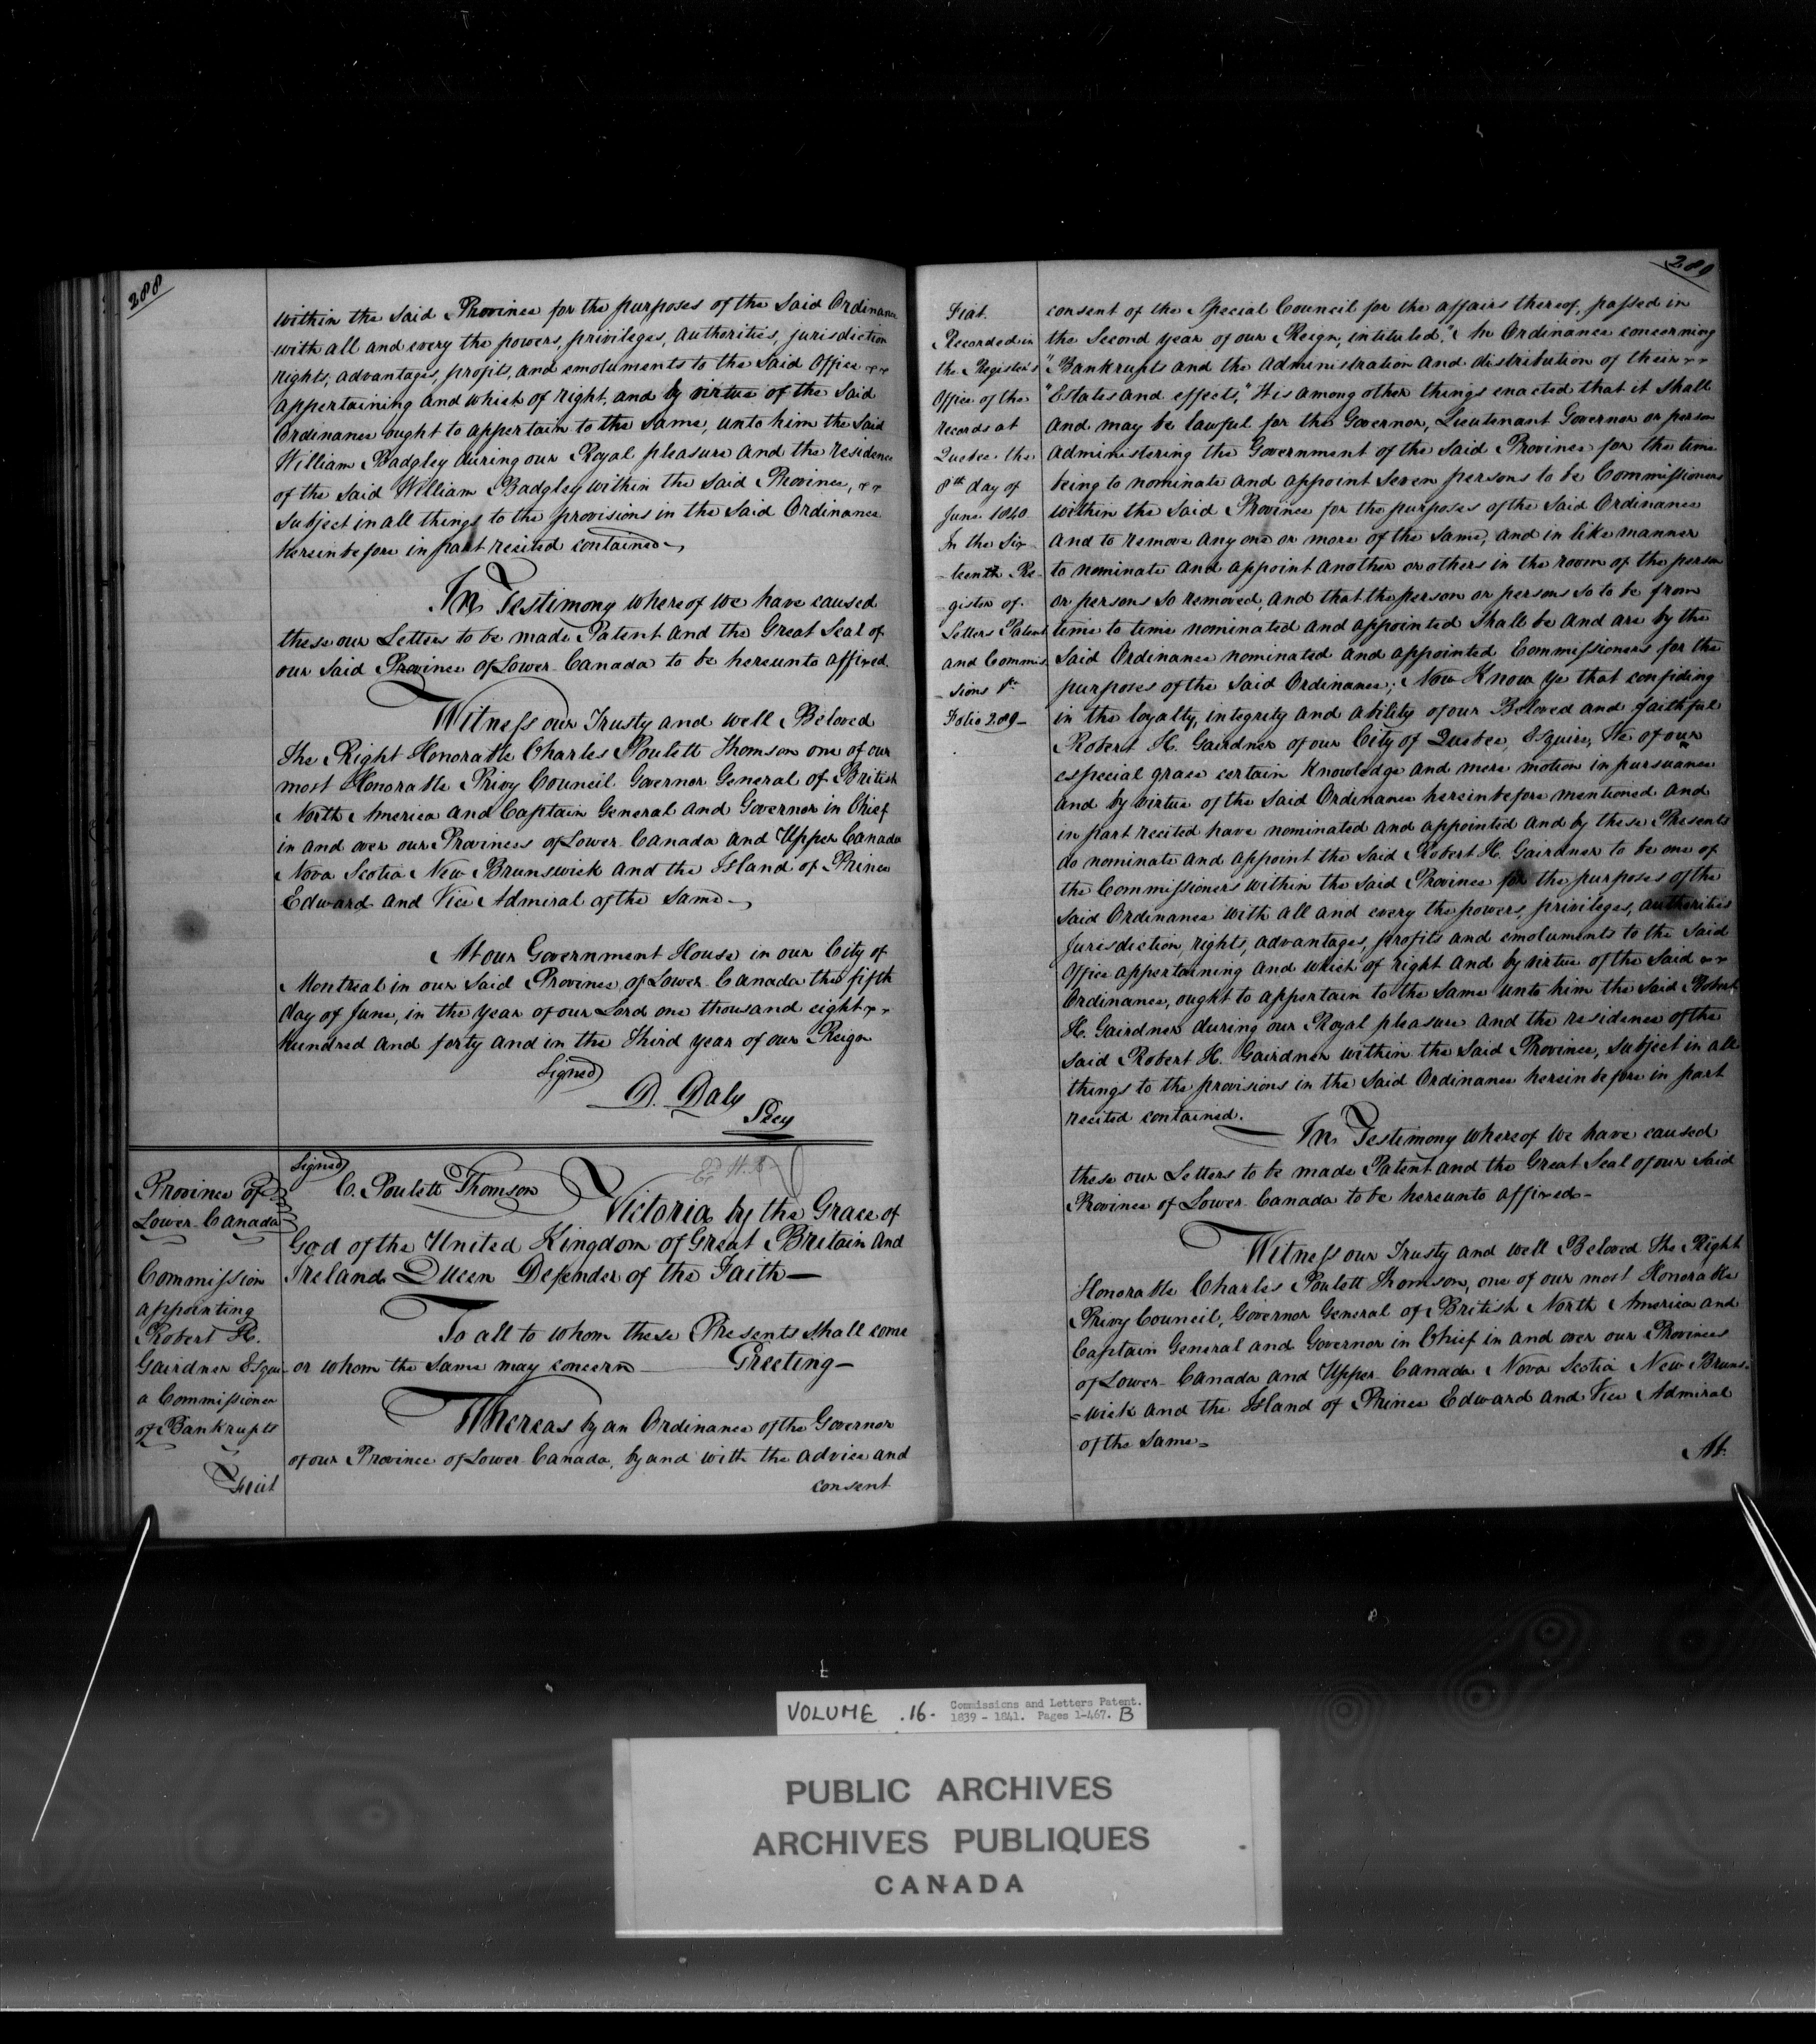 288
within the said Province for the purposes of the said Ordinance
with all and every the powers, privileges, authorities, jurisdiction
rights, advantages, profits, and emoluments to the said Office
appertaining and which of right, and by virtue of the said
Ordinance ought to appertain to the same, unto him the said
William Badgley during our Royal pleasure and the residence
of the said William Badgley within the said Province,
subject in all things to the provisions in the said Ordinance
hereinbefore in part recited contained
In Testimony whereof We have caused
these our Letters to be made Patent and the Great Seal of
our said Province of Lower Canada to be hereunto affixed
Witness our Trusty and well Beloved
The Right Honorable Charles Poulett Thomson one of our
most Honorable Privy Council Governor General of British
North America and Captain General and Governor in Chief
in and over our Provinces of Lower Canada and Upper Canada
Nova Scotia New Brunswick and the Island of Prince
Edward and Vice Admiral of the same
At our Government House in our City of
Montreal in our said Province of Lower Canada the fifth
day of June, in the year of our Lord one thousand eight
hundred and forty and in the Third year of our Reign
Signed
D. Daly
Secy
Province of
Lower Canada
Commission
appointing
Robert H.
Gairdner Esqre
a Commissioner
of Bankrupts
Fiat
Signed
C. Poulett Thomson
Victoria by the Grace of
God of the United Kingdom of Great Britain and
Ireland Queen Defender of the Faith—
To all to whom these Presents shall come
or whom the same may concern Greeting—
Whereas by an Ordinance of the Governor
of our Province of Lower Canada, by and with the advice and
consent
289
Fiat.
Recorded in
the Register's
Office of the
records at
Quebec the
8th day of
June 1840
In the Six
-teenth Re-
gister of
Letters Patent
and Commis
-sions
Folio 289—
consent of the Special Council for the affairs thereof, passed in
the Second year of our Reign, intituled, "An Ordinance concerning
"Bankrupts and the administration and distribution of their
"Estates and effects," It is among other things enacted that it shall
and may be lawful for the Governor, Lieutenant Governor or person
administering the Government of the said Province for the time
being to nominate and appoint seven persons to be Commissioners
within the said Province for the purposes of the said Ordinance
and to remove any one or more of the same, and in like manner
to nominate and appoint another or others in the room of the person
or persons so removed, and that the person or persons so to be from
time to time nominated and appointed shall be and are by the
said Ordinance nominated and appointed Commissioners for the
purposes of the said Ordinance; Now Know Ye that confiding
in the loyalty, integrity and ability of our Beloved and faithful
Robert H. Gairdner of our City of Quebec, Esquire, We of our
especial grace certain knowledge and mere motion in pursuance
and by virtue of the said Ordinance hereinbefore mentioned and
in part recited have nominated and appointed and by these Presents
do nominate and appoint the said Robert H. Gairdner to be one of
the Commissioners within the said Province for the purposes of the
said Ordinance with all and every the powers, privileges, authorities
Jurisdiction, rights, advantages, profits and emoluments to the said
Office appertaining and which of right and by virtue of the said
Ordinance, ought to appertain to the same unto him the said Robert
H. Gairdner during our Royal pleasure and the residence of the
said Robert H. Gairdner within the said Province, subject in all
things to the provisions in the said Ordinance hereinbefore in part
recited contained.
In Testimony whereof We have caused
these our Letters to be made Patent and the Great Seal of our said
Province of Lower Canada to be hereunto affixed-
Witness our Trusty and well Beloved The Right
Honorable Charles Poulett Thomson, one of our most Honorable
Privy Council, Governor General of British North America and
Captain General and Governor in Chief in and over our Provinces
of Lower Canada and Upper Canada Nova Scotia New Bruns-
=wick and the Island of Prince Edward and Vice Admiral
of the same=
At.
VOLUME .16. Commissions and Letters Patent.
1839 - 1841. Pages 1-467. B
PUBLIC ARCHIVES
ARCHIVES PUBLIQUES
CANADA